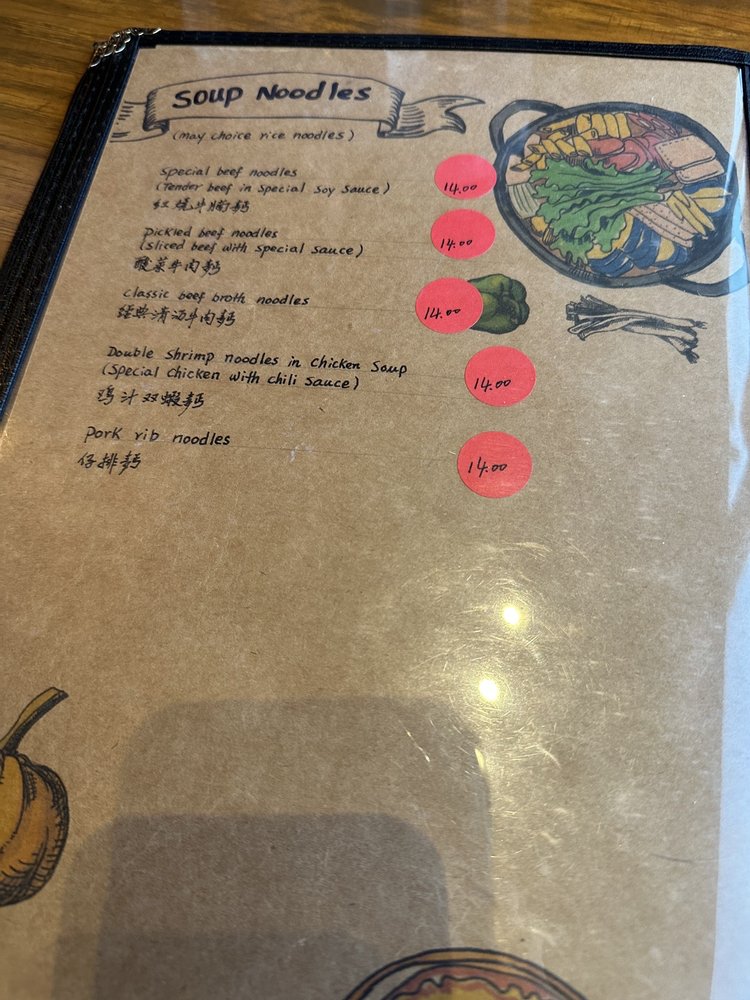 Soup Noodles
(may choice rice noodles)
Special beef noodles
(Tender beef in Special Soy Sauce) 14.00
红燒牛腩麵
pickled beef noodles
(sliced beef with special sauce) 14.00
酸菜牛肉麵
classic beef broth noodles 14.00
經典清汤牛肉麵
Double shrimp noodles in chicken soup
(Special chicken with chili sauce) 14.00
鸡汁双蝦麵
Pork rib noodles 14.00
仔排麵